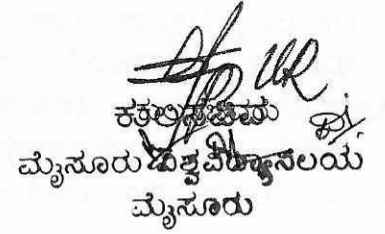 ಕುಲಸಚಿವರು
ಮೈಸೂರು ವಿಶ್ವವಿದ್ಯಾನಿಲಯ
ಮೈಸೂರು